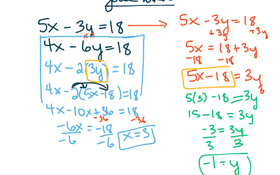 5x - 3y = 18
4x - 6y = 18
4x - 2(3y) = 18
4x - 2(5x - 18) = 18
4x - 10x + 36 = 18
-36 -36
-6x = -18
-6 -6
x = 3
5x - 3y = 18
+3y +3y
5x = 18 + 3y
-18 -18
5x - 18 = 3y
5(3) - 18 = 3y
15 - 18 = 3y
-3 = 3y
3 3
-1 = y